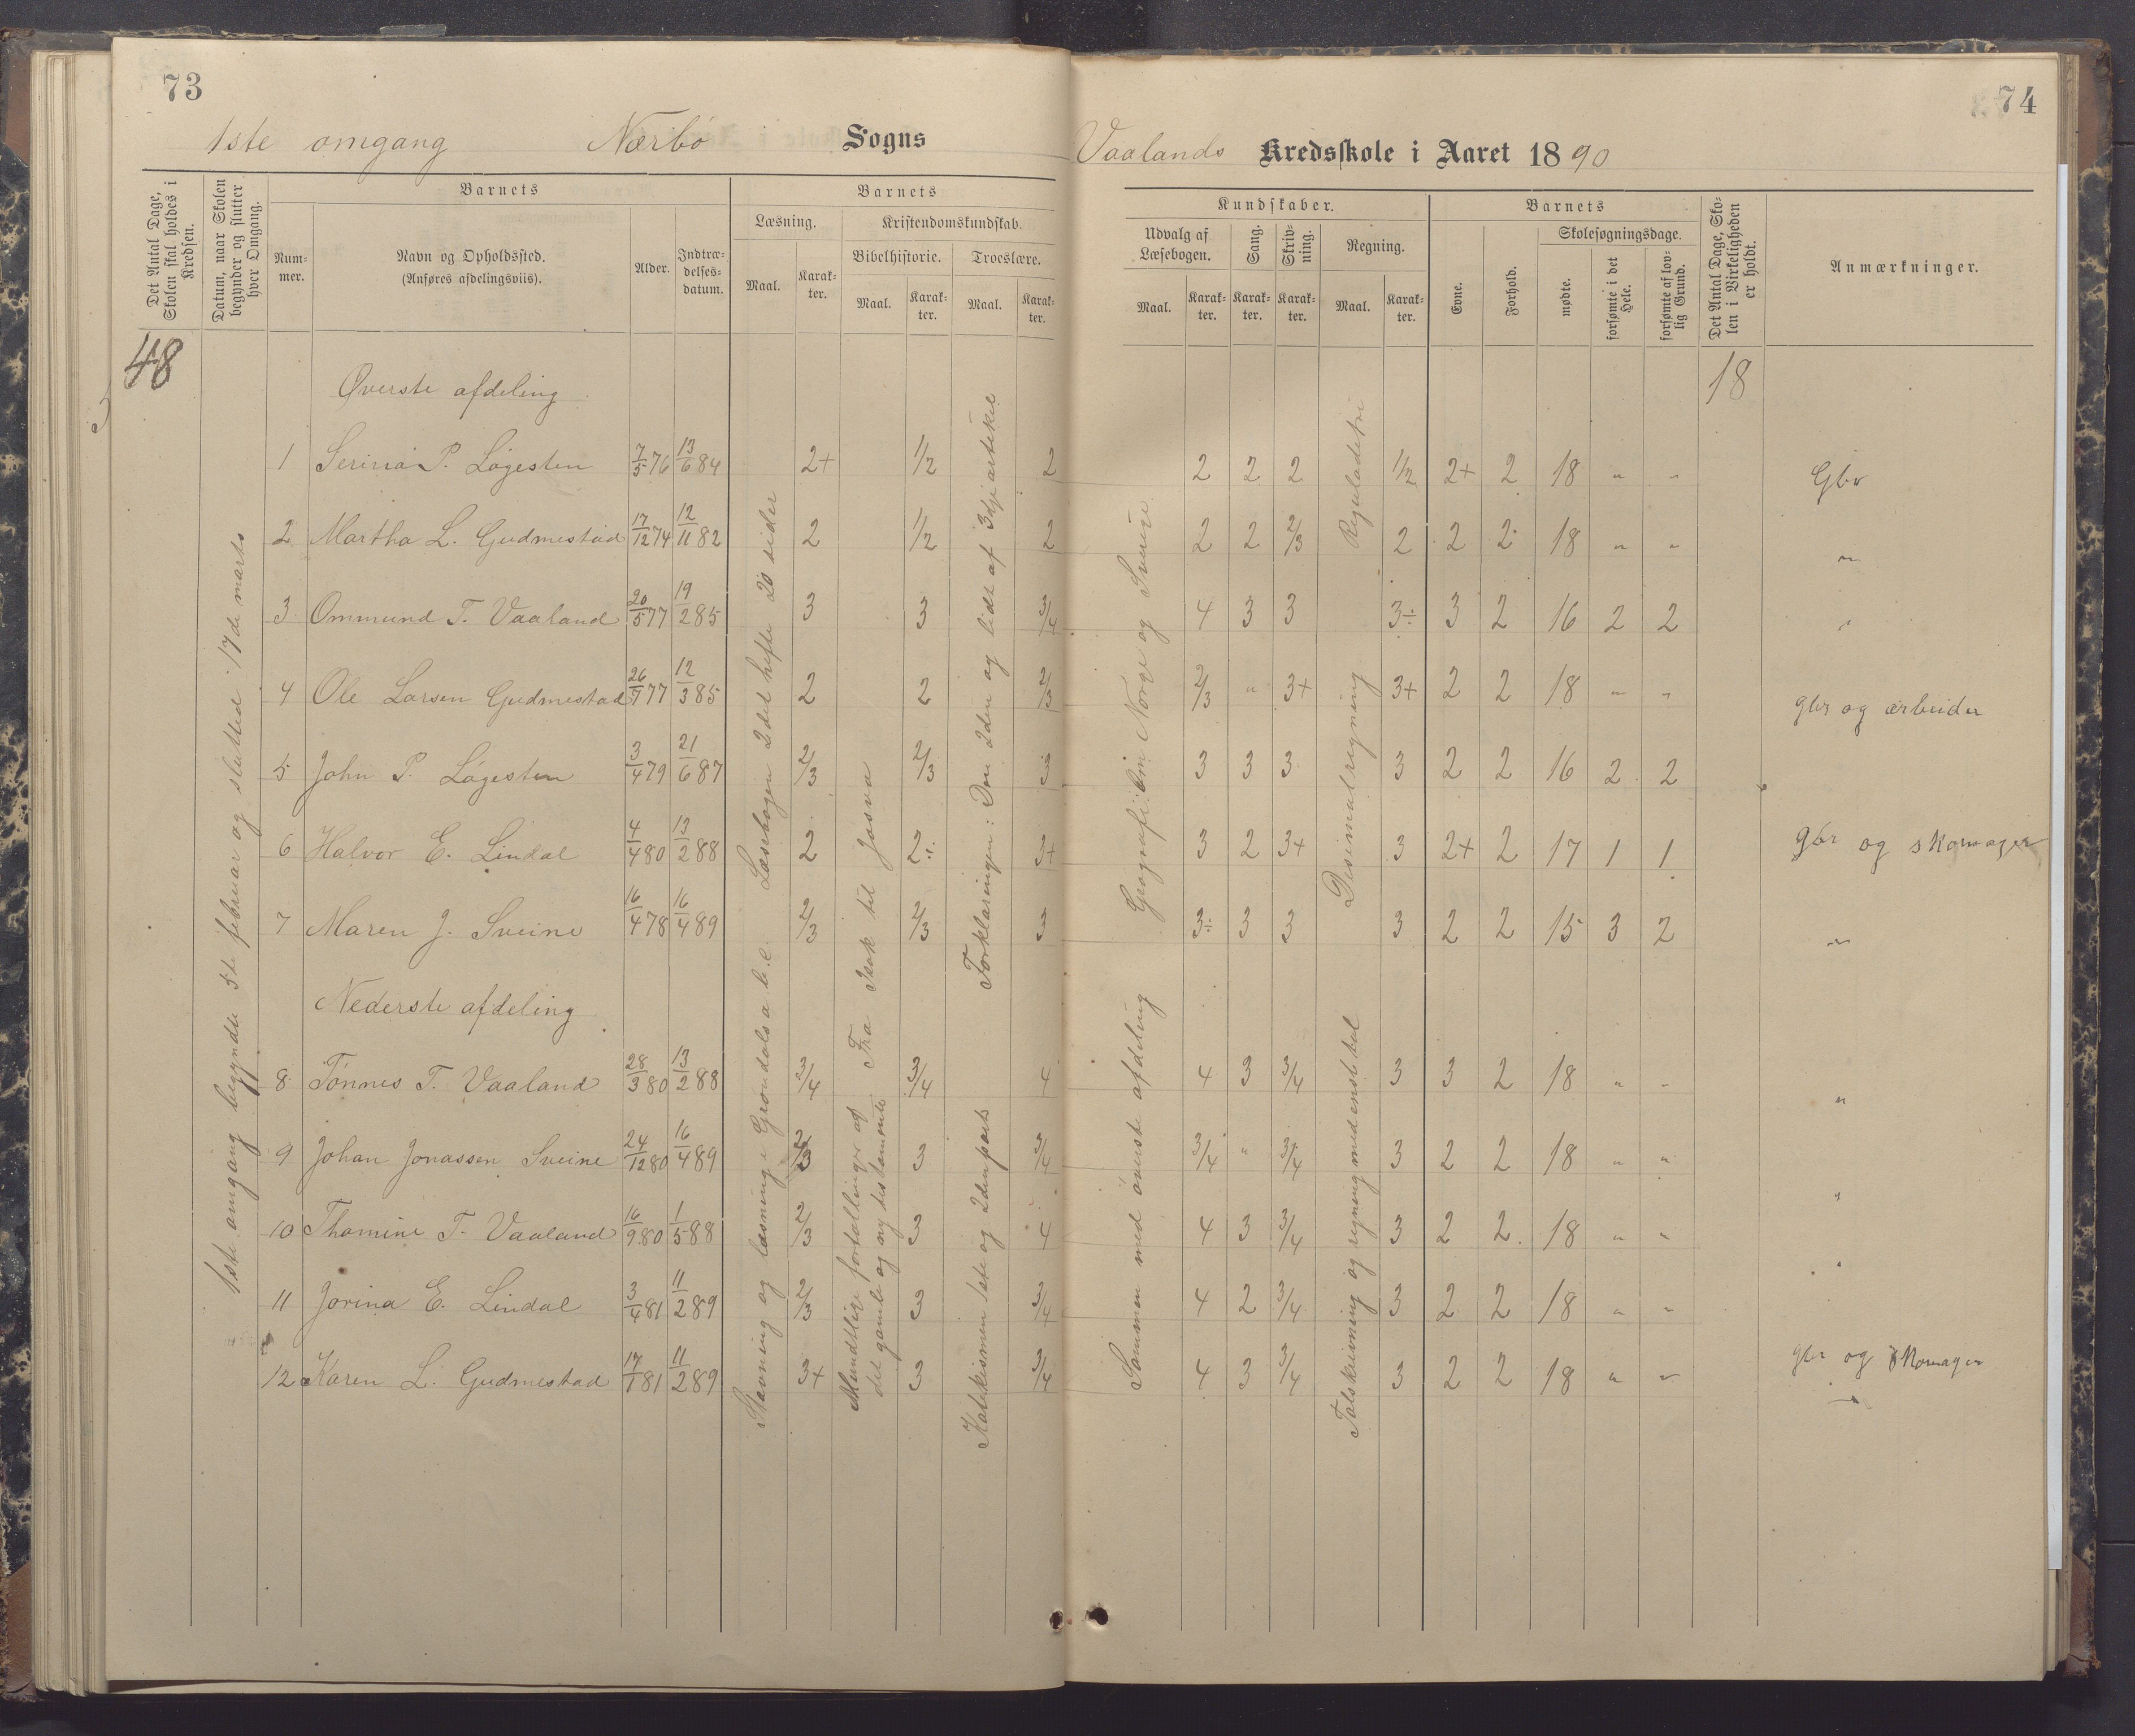 73
74
1ste omgang Nærbö Sogns
Vaalands Kredsskole i Aaret 1890
Det Antal Dage, Skolen skal holdes i Kredsen.
Datum, naar Skolen begynder og slutter hver Omgang.
Barnets
Num-mer.
Navn og Opholdssted.
(Anføres afdelingsviis).
Alder.
Indtræ-delses-datum.
Barnets
Læsning.
Maal.
Karak-ter.
Kristendomskundskab.
Bibelhistorie.
Maal.
Karak-ter.
Troeslære.
Maal.
Karak-ter.
Kundskaber.
Udvalg af Læsebogen.
Maal.
Karak-ter.
Sang.
Karak-ter.
Skriv-ning.
Karak-ter.
Regning.
Maal.
Karak-ter.
Barnets
Evne.
Forhold.
Skolesøgningsdage.
mødte.
forsømte i det Hele.
forsømte af lov-lig Grund.
Det Antal Dage, Sko-len i Virkeligheden er holdt.
Anmærkninger.
48
18
1ste omgang begyndte 5te februar og sluttede 17de marts
Øverste afdeling
1 Serina P. Lögesten 7/5 76 13/6 84 2+ 1/2 2 2 2 2 1/2 2+ 2 18 " " Gbr
2 Martha L. Gudmestad 17/12 74 12/11 82 2 1/2 2 2 2 2/3 2 2 2 18 " " "
3 Ommund T. Vaaland 20/5 77 19/2 85 3 3 3/4 4 3 3 3÷ 3 2 16 2 2 "
4 Ole Larsen Gudmestad 26/7 77 12/3 85 2 2 2/3 2/3 " 3+ 3+ 2 2 18 " " gbr og arbeider
5 John P. Lögesten 3/4 79 21/6 87 2/3 2/3 3 3 3 3 3 2 2 16 2 2
6 Halvor E. Lindal 4/4 80 13/2 88 2 2÷ 3+ 3 2 3+ 3 2+ 2 17 1 1 gbr og skomager
7 Maren J. Sveine 16/4 78 16/4 89 2/3 2/3 3 3÷ 3 3 3 2 2 15 3 2 "
Læsebogen 2det hefte 20 sider
Fra Isak til Josva
Forklaringen: Den 2den og lidt af 3dje artikel
Geografi: Om Norge og Sverige
Desimalregning Reguladetri
Nederste afdeling
8 Tönnes T. Vaaland 28/3 80 13/2 88 3/4 3/4 4 4 3 3/4 3 3 2 18 " " "
9 Johan Jonassen Sveine 24/12 80 16/4 89 2/3 3 3/4 3/4 " 3/4 3 2 2 18 " " "
10 Thomine T. Vaaland 16/9 80 1/5 88 2/3 3 4 4 3 3/4 3 2 2 18 " " "
11 Jorina E. Lindal 3/4 81 11/2 89 2/3 3 3/4 4 2 3/4 3 2 2 18 " " gbr og skomager
12 Karen L. Gudmestad 17/7 81 11/2 89 3+ 3 3/4 4 3 3/4 3 2 2 18 " " "
Stavning og læsning i Gröndals a.b.c.
Mundtlige fortællinger af det gamle og ny testamente
Katekismen 1ste og 2den part
Sammen med överste afdeling
Talskrivning og regning med enste tal